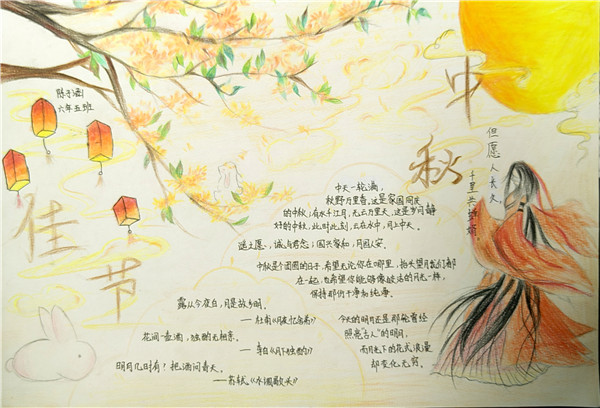 中
秋
佳
节
六年五班
但愿人长久
千里共婵娟
中天一轮满,
秋野万里香,这是家国同庆
的中秋;有水千江月,无云万里天,这是岁月静
好的中秋,此时此刻,云在水中,月上中天。
送上愿,诚与君念;国兴家和,月圆人安。
中秋是个团圆的日子,希望无论你在哪里,抬头望月我们都
在一起,也希望你能够像皎洁的月光一样,
保持那份干净和纯海。
露从今夜白,月是故乡明。
——杜甫《月夜忆舍弟》
花间一壶酒,独酌无相亲。
——李白《月下独酌》
明月几时有?把酒问青天。
——苏轼《水调歌头》
今天的明月还是那轮曾经
照亮古人"的明月,
而月光下的花式浪漫
却变化无穷。